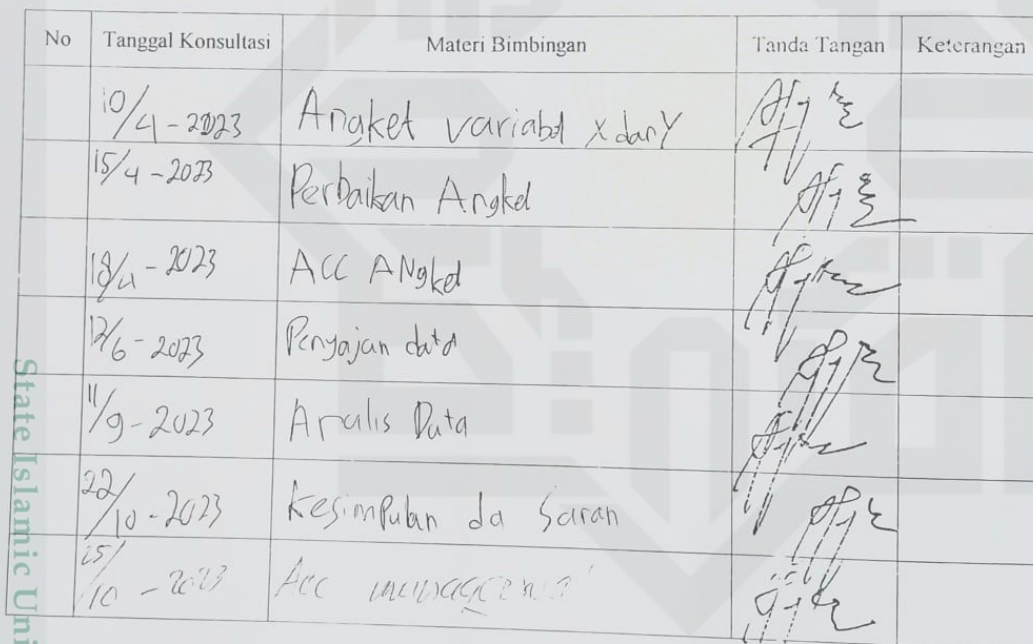 No Tanggal Konsultasi Materi Bimbingan Tanda Tangan Keterangan
10/4 - 2023 Angket variabel X dan Y
15/4 - 2023 Perbaikan Angket
18/4 - 2023 ACC ANgket
12/6 - 2023 Penyajan data
11/9 - 2023 Analis Data
22/10 - 2023 Kesimpulan da Saran
25/10 - 2023 Acc
State Islamic Uni